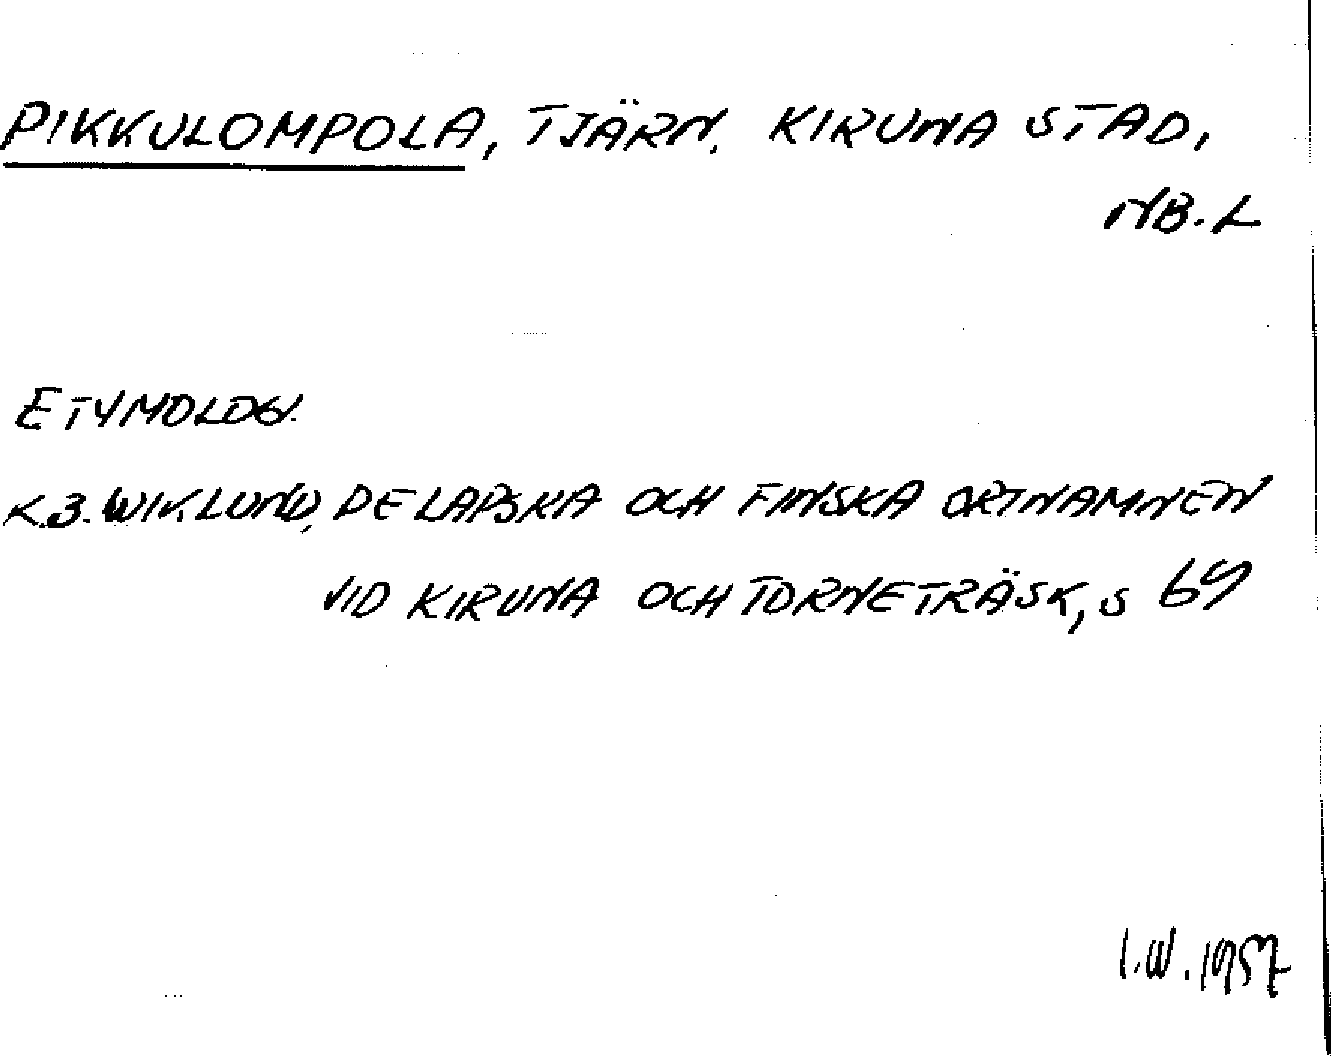 PIKKULOMPOLA, TJÄRN. KIRUNA STAD,
NB. L
ETYMOLOGI.
K.B. WIKLUND, DE LAPSKA OCH FINSKA ORTNAMNEN
VID KIRUNA OCH TORNETRÄSK, s 69
I.W. 1957